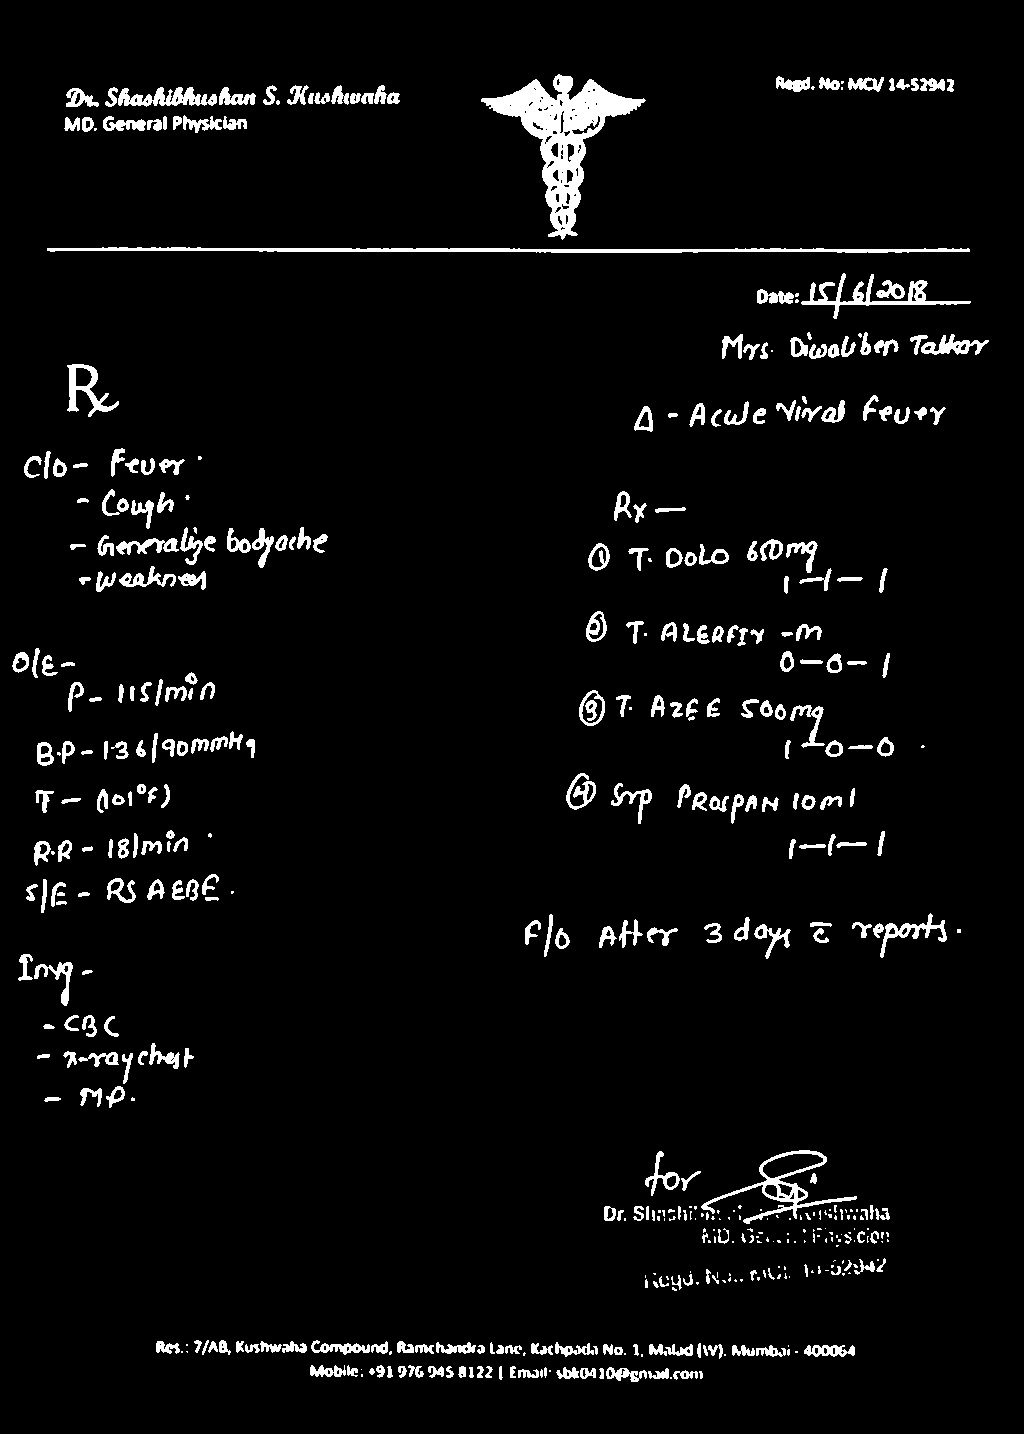 Dr. Shashibhushan S. Kushwaha
MD. General Physician
Regd. No: MCI/ 14-52942
Date: 15/6/2018
Mrs. Diwaliben Takkar
Rx
Δ - Acute Viral Fever
C/o - Fever
- Cough
- Generalize bodyache
- Weakness
O/E -
P - 115/min
B.P - 136/90mmHg
T - (101°F)
R.R - 18/min
S/E - RS AEBE.
Invg -
- CBC
- x-ray chest
- M.P.
Rx —
① T. DOLO 650mg
1—1—1
② T. ALERFIX -M
0—0—1
③ T. AZEE 500mg
1—0—0
④ Syp PROSPAN 10ml
1—1—1
F/o After 3 days c̄ reports.
for
Dr. Shashibhushan S. Kushwaha
MD. General Physician
Regd. No.: MCI/ 14-52942
Res.: 7/AB, Kushwaha Compound, Ramchandra Lane, Kachpada No. 1, Malad (W). Mumbai - 400064
Mobile: +91 976 945 8122 | Email: sbk0410@gmail.com